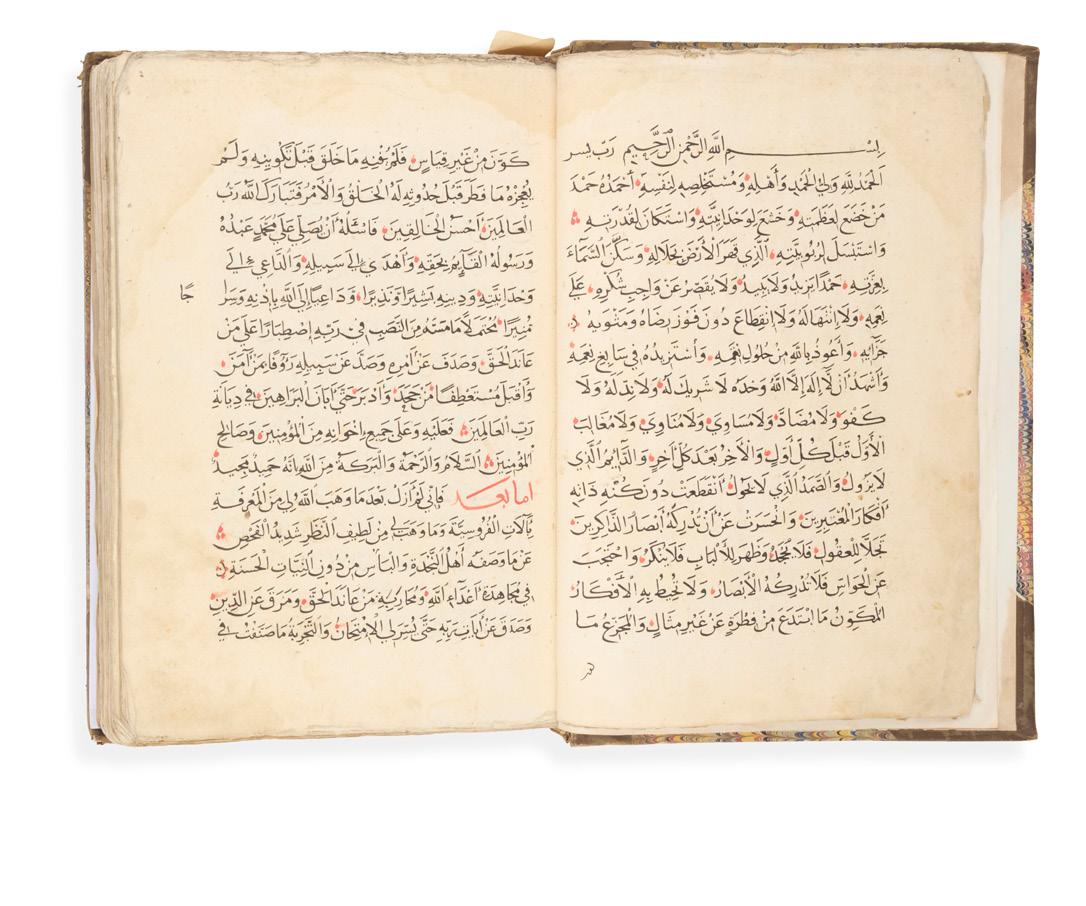 بِسْمِ اللَّهِ الرَّحْمَنِ الرَّحِيمِ رَبِّ يسر
الْحَمْدُ لِلَّهِ وَلِيِّ الْحَمْدِ وَأَهْلِهِ وَمُسْتَخْلِصِهِ لِنَفْسِهِ أَحْمَدُهُ حَمْدَ
مَنْ خَضَعَ لِعَظَمَتِهِ وَخَشَعَ لِوَحْدَانِيَّتِهِ وَاسْتَكَانَ لِقُدْرَتِهِ
وَاسْتَبْسَلَ لِرُبُوبِيَّتِهِ الَّذِي قَهَرَ الْأَرْضَ بِجَلَالِهِ وَسَكَنَ السَّمَاءَ
بِعِزَّتِهِ حَمْدًا يَزِيدُ وَلَا يَبِيدُ وَلَا يُقَصِّرُ عَنْ وَاجِبِ شُكْرِهِ عَلَى
نِعَمِهِ وَلَا انْتِهَا لَهُ وَلَا انْقِطَاعَ دُونَ فَوْزِ رِضَاهُ وَمَثُوبَةِ
جَزَائِهِ وَأَعُوذُ بِاللَّهِ مِنْ حُلُولِ نِقَمِهِ وَأَسْتَزِيدُهُ فِي سَابِغِ نِعَمِهِ
وَأَشْهَدُ أَنْ لَا إِلَهَ إِلَّا اللَّهُ وَحْدَهُ لَا شَرِيكَ لَهُ وَلَا نِدَّ لَهُ وَلَا
كُفُوَ وَلَا مُضَادَّ وَلَا مُسَاوِيَ وَلَا مُنَاوِيَ وَلَا مُغَالِبَ
الْأَوَّلُ قَبْلَ كُلِّ أَوَّلٍ وَالْآخِرُ بَعْدَ كُلِّ آخِرٍ وَالدَّايِمُ الَّذِي
لَا يَزُولُ وَالصَّمَدُ الَّذِي لَا يَحُولُ انْقَطَعَتْ دُونَ كُنْهِ ذَاتِهِ
أَفْكَارُ الْمُعْتَبِرِينَ وَانْحَسَرَتْ عَنْ أَنْ تُدْرِكَهُ أَبْصَارُ الذَّاكِرِينَ
تَجَلَّا لِلْعُقُولِ فَلَا يُجْحَدُ وَظَهَرَ لِلْأَلْبَابِ فَلَا يُنْكَرُ وَاحْتَجَبَ
عَنِ الْحَوَاسِّ فَلَا تُدْرِكُهُ الْأَبْصَارُ وَلَا تُحِيطُ بِهِ الْأَفْكَارُ
الْمُكَوِّنُ مَا ابْتَدَعَ مِنْ فِطْرَةٍ عَنْ غَيْرِ مِثَالٍ وَالْمُخْتَرِعُ مَا
كَوَّنَ مِنْ غَيْرِ قِيَاسٍ فَلَمْ يَفُتْهُ مَا خَلَقَ قَبْلَ تَكْوِينِهِ وَلَمْ
يُعْجِزْهُ مَا فَطَرَ قَبْلَ حُدُوثِهِ لَهُ الْخَلْقُ وَالْأَمْرُ فَتَبَارَكَ اللَّهُ رَبُّ
الْعَالَمِينَ أَحْسَنُ الْخَالِقِينَ فَاسْئَلُهُ أَنْ يُصَلِّيَ عَلَى مُحَمَّدٍ عَبْدِهِ
وَرَسُولِهِ الْقَايِمِ بِحَقِّهِ وَأَهْدِي إِلَى سَبِيلِهِ وَالدَّاعِي إِلَى
وَحْدَانِيَّتِهِ وَدِينِهِ بَشِيرًا وَنَذِيرًا وَدَاعِيًا إِلَى اللَّهِ بِإِذْنِهِ وَسِرَا
جًا
مُنِيرًا مُحْتَمِلًا مَا مَسَّهُ مِنَ النَّصَبِ فِي رَبِّهِ اصْطِبَارًا عَلَى مَنْ
عَانَدَ الْحَقَّ وَصَدَفَ عَنْ أَمْرِهِ وَصَدَّ عَنْ سَبِيلِهِ رَؤُفًا بِمَنْ آمَنَ
وَأَقْبَلَ مُسْتَعْطِفًا مَنْ جَحَدَ وَأَدْبَرَ حَتَّى أَبَانَ الْبَرَاهِينَ فِي دِيَانَةِ
رَبِّ الْعَالَمِينَ فَعَلَيْهِ وَعَلَى جَمِيعِ إِخْوَانِهِ مِنَ الْمُؤْمِنِينَ وَصَالِحِ
الْمُؤْمِنِينَ السَّلَامُ وَالرَّحْمَةُ وَالْبَرَكَةُ مِنَ اللَّهِ إِنَّهُ حَمِيدٌ مَجِيدٌ
اما بعد فَإِنِّي لَمْ أَزَلْ بَعْدَ مَا وَهَبَ اللَّهُ لِي مِنَ الْمَعْرِفَةِ
بِآلَاتِ الْفُرُوسِيَّةِ وَمَا وَهَبَ لِي مِنْ لَطِيفِ النَّظَرِ شَدِيدَ الْفَحْصِ
عَنْ مَا وَصَفَهُ أَهْلُ النَّجْدَةِ وَالْبَأْسِ مِنْ ذَوِي النِّيَّاتِ الْحَسَنَةِ
فِي مُجَاهَدَةِ أَعْدَاءِ اللَّهِ وَمُحَارَبَةِ مَنْ عَانَدَ الْحَقَّ وَمَرَقَ عَنِ الدِّينِ
وَصَدَفَ عَنْ آيَاتِ رَبِّهِ حَتَّى يُسِّرَ لِي الْإِمْتِحَانُ وَالتَّجْرِبَةُ مَا صَنَّفْتُ فِي